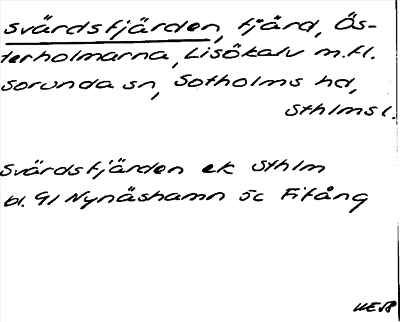 Svärdsfjärden, fjärd, Ös-
terholmarna, Lisökalv m.fl.
Sorunda sn, Sotholms hd,
Sthlmsl.
Svärdsfjärden ek Sthlm
bl. 91 Nynäshamn 5c Fifång